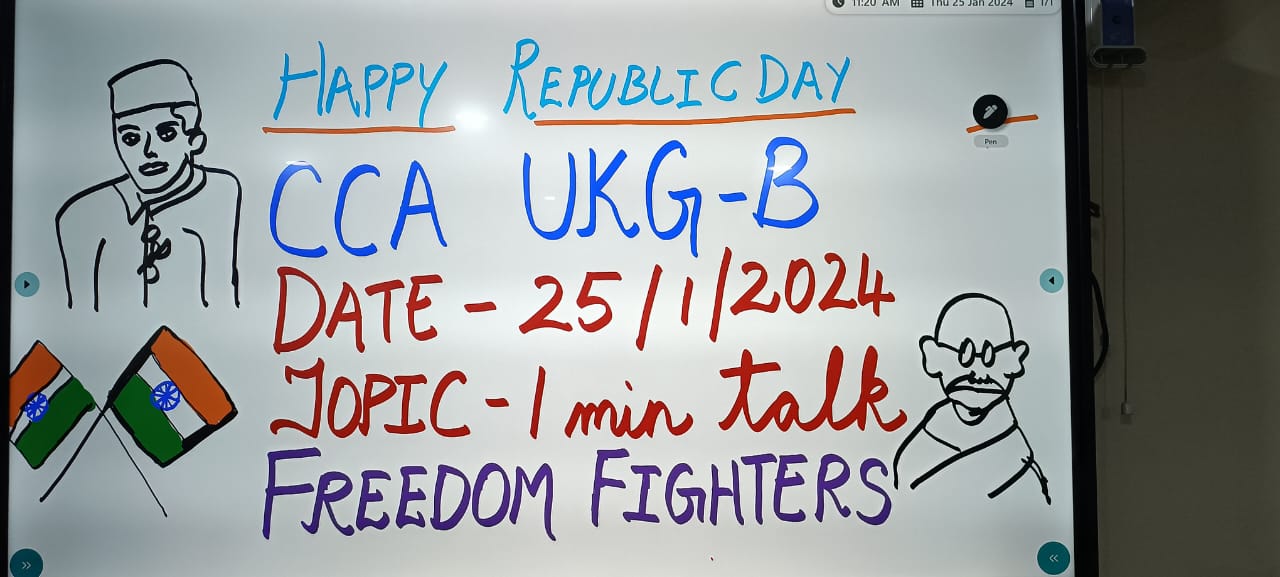 11:20 AM Thu 25 Jan 2024 1/1
HAPPY REPUBLIC DAY
Pen
CCA UKG-B
DATE - 25/1/2024
TOPIC - 1 min talk
FREEDOM FIGHTERS